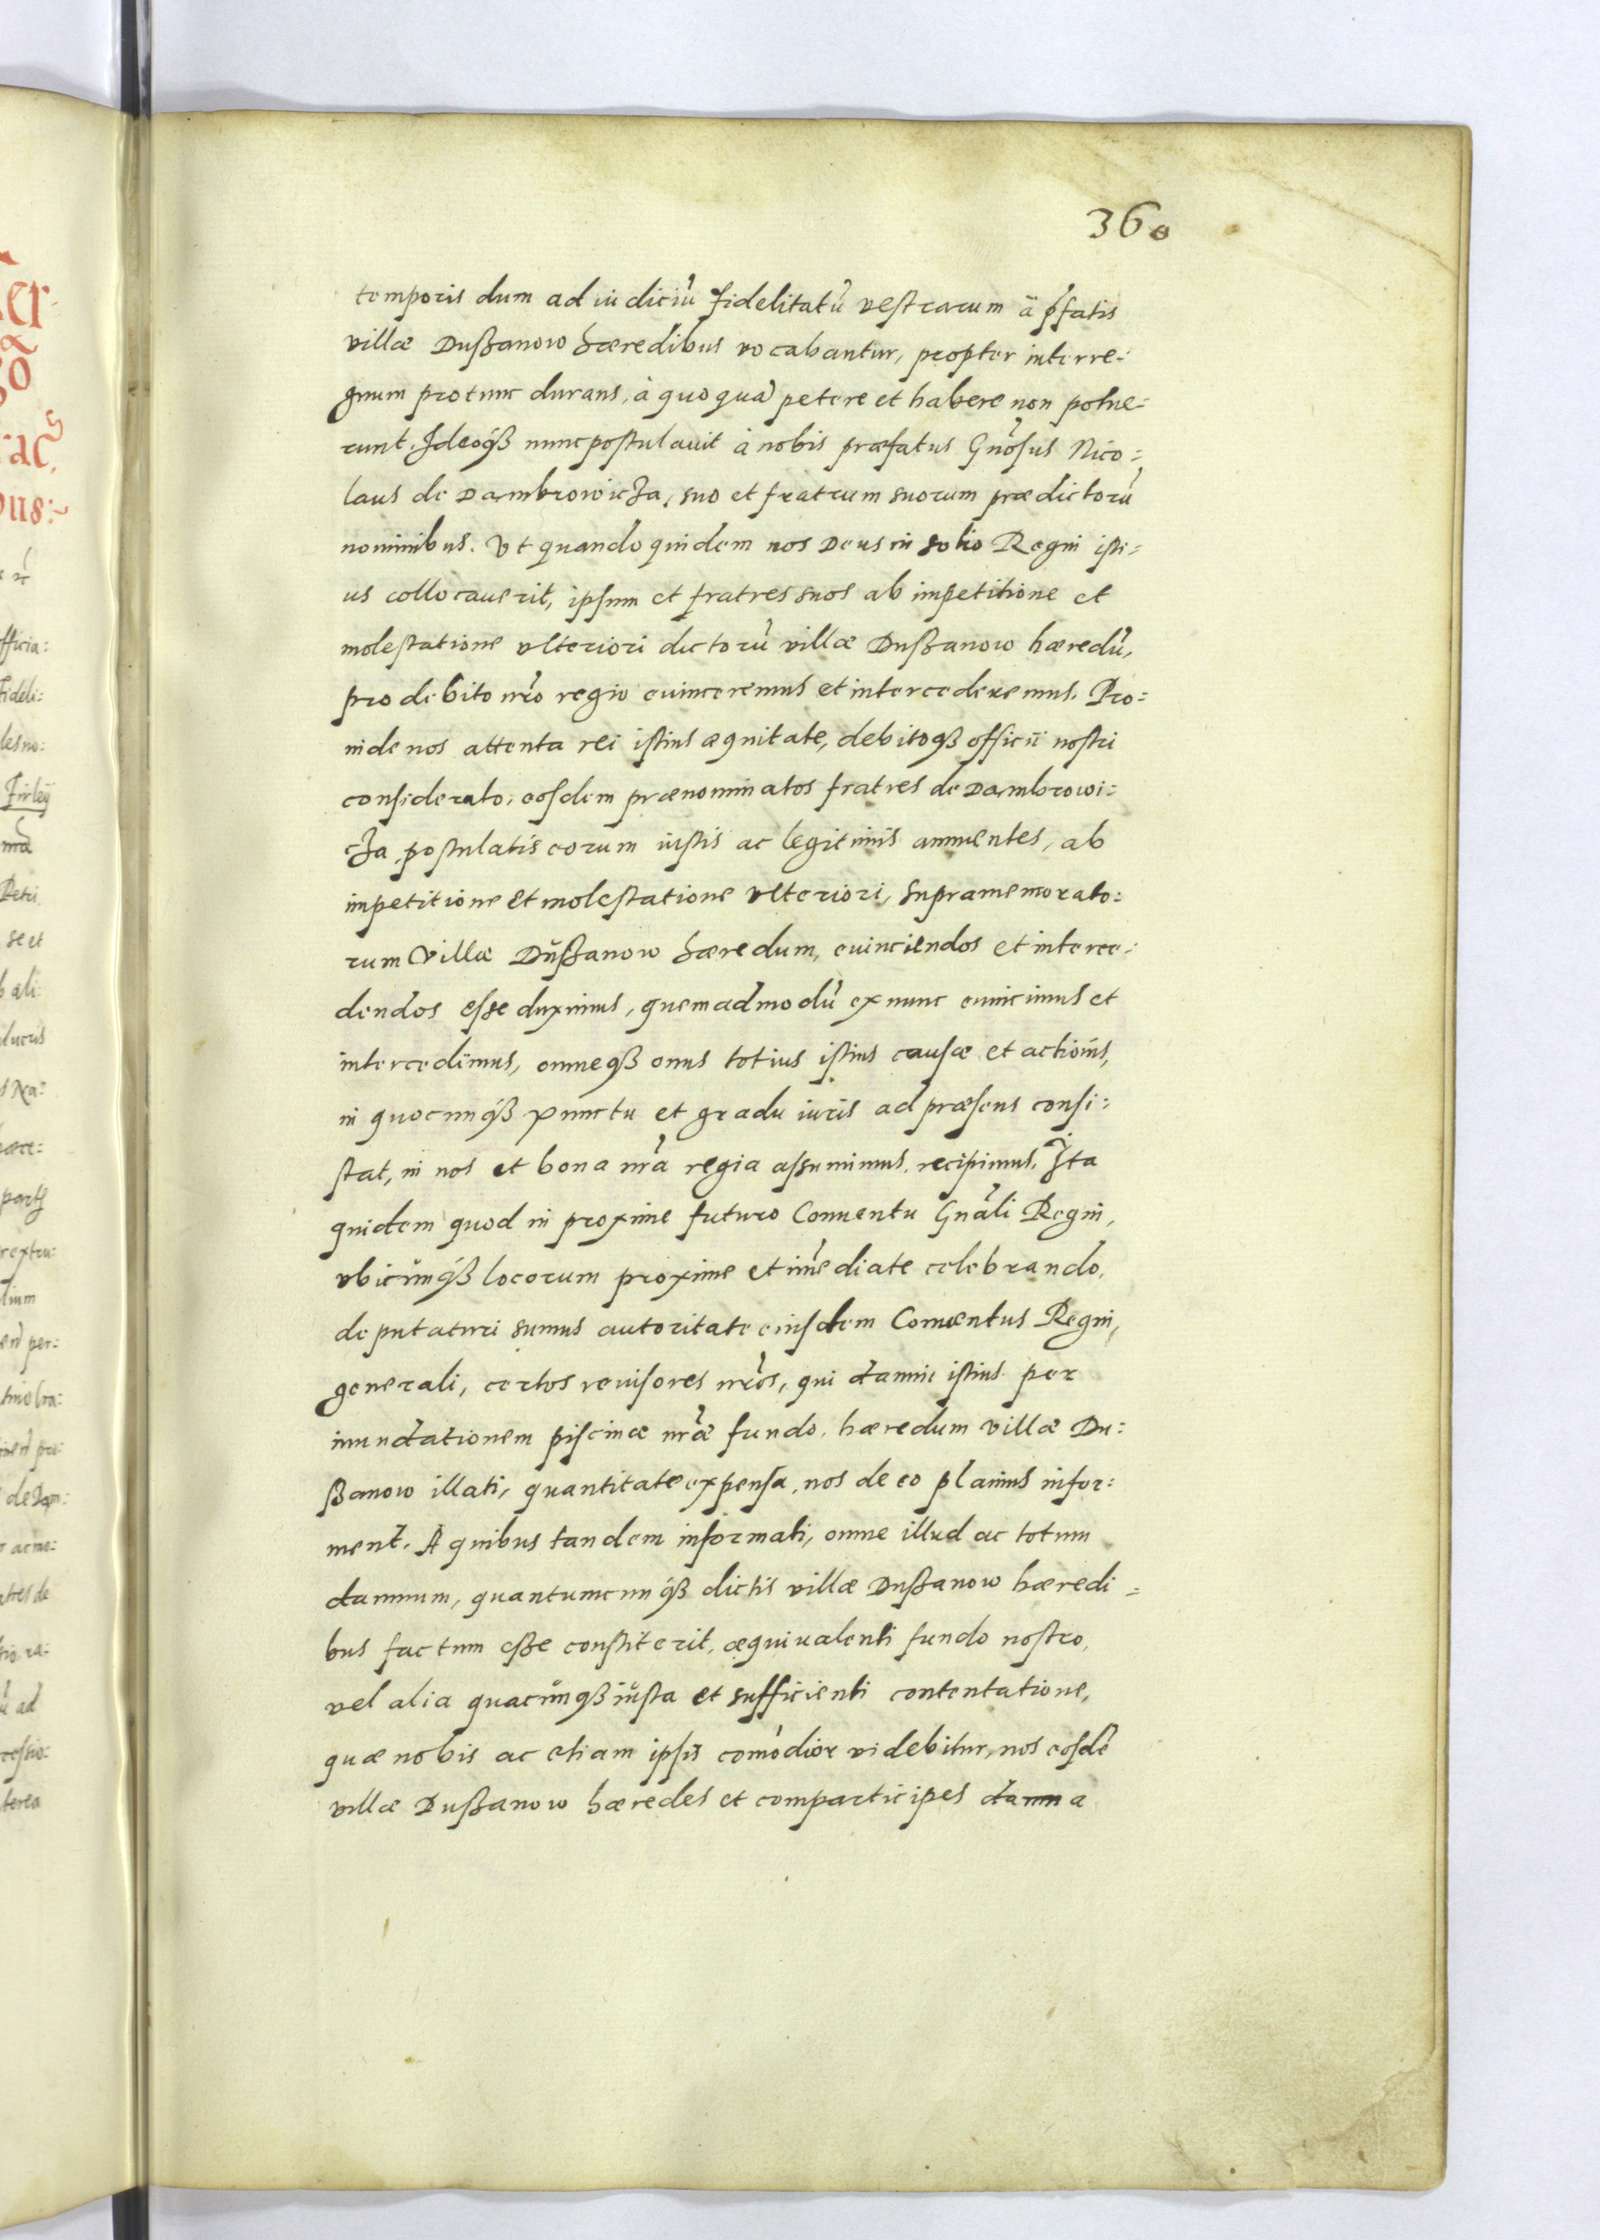 360
temporis dum ad iudiciũ fidelitatũ vestrarum à p̃fatis
villæ Dußanow hæredibus vocabantur, propter interre=
gnum protunc durans, à quoquã petere et habere non potue=
runt. Ideoqß nunc postulauit à nobis præfatus Gñosus Nico=
laus de Dambrowicza, suo et fratrum suorum prædictorũ
nominibus. Vt quandoquidem nos Deus in solio Regni isti=
us collocauerit, ipsum et fratres suos ab impetitione et
molestatione vlteriori dictorũ villæ Dußanow hæredũ,
pro debito nr̃o regio euinceremus et intercederemus. Pro=
inde nos attenta rei istius æquitate, debitoqß officii nostri
considerato, eosdem prænominatos fratres de Dambrowi=
cza, postulatis eorum iustis ac legitimis annuentes, ab
impetitione et molestatione vlteriori, supramemorato=
rum Villæ Dußanow hæredum, euinciendos et interce=
dendos esse duximus, quemadmodũ ex nunc euincimus et
intercedimus, omneqß onus totius istius causæ et actionis,
in quocunqß punctu et gradu iuris ad præsens consi=
stat, in nos et bona nr̃a regia assumimus, recipimus. Ita
quidem quod in proxime futuro Conuentu Gñali Regni,
vbicunqß locorum proxime et im̃ediate celebrando,
deputaturi sumus autoritate eiusdem Conuentus Regni,
generali, certos reuisores nr̃os, qui damni istius per
inundationem piscinæ nr̃æ fundo, hæredum villæ Du=
ßanow illati, quantitate expensa, nos de eo planius infor=
ment. A quibus tandem informati, omne illud ac totum
damnum, quantumcunqß dictis villæ Dußanow hæredi=
bus factum esße constiterit, æquiualenti fundo nostro,
vel alia quacunqß iusta et sufficienti contentatione,
quæ nobis ac etiam ipsis com̃odior videbitur, nos eosdẽ
villæ Dußanow hæredes et comparticipes damna